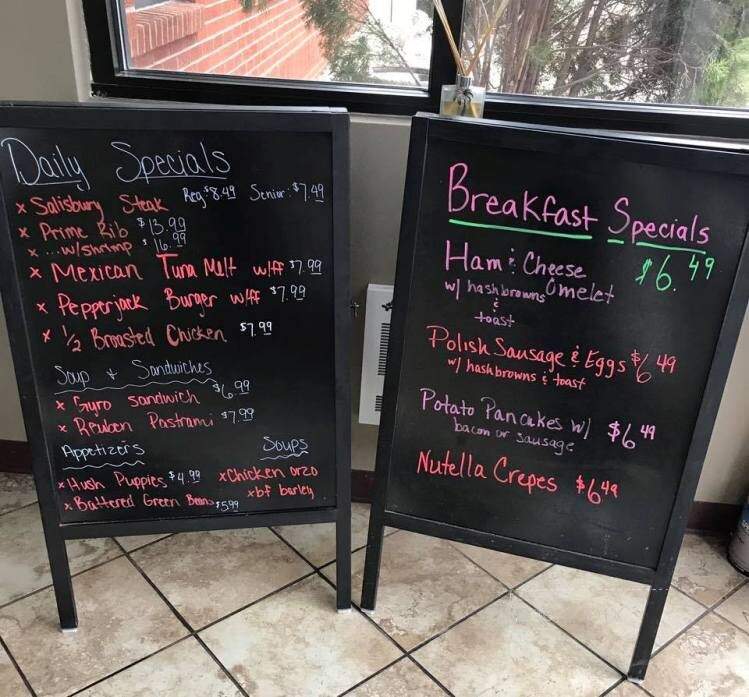 Daily Specials
x Salisbury Steak Reg: $8.49 Senior: $7.49
x Prime Rib $13.99
x ... w/shrimp $16.99
x Mexican Tuna Melt w/ff $7.99
x Pepperjack Burger w/ff $7.99
x 1/2 Broasted Chicken $7.99
Soup & Sandwiches
x Gyro sandwich $6.99
x Reuben Pastrami $7.99
Appetizers
x Hush Puppies $4.99
x Battered Green Beans $5.99
Soups
x Chicken orzo
x bf barley
Breakfast Specials
Ham & Cheese $6.49
Omelet
w/ hashbrowns
&
toast
Polish Sausage & Eggs $6.49
w/ hashbrowns & toast
Potato Pancakes w/ $6.49
bacon or sausage
Nutella Crepes $6.49